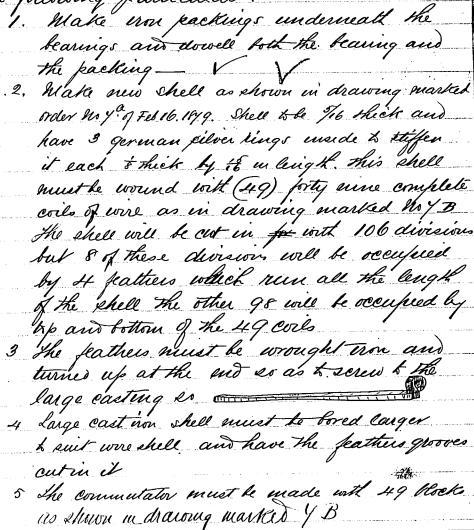 1. Make iron packings underneath the
bearings and dowell both the bearing and
the packing —
2. Make new shell as shown in drawing marked
order No 7a of Feb 16. 1879. Shell to be 5/16 thick and
have 3 german silver rings inside to stiffen
it each thick by in length. This shell
must be wound with (49) forty nine complete
coils of wire as in drawing marked No Y B
The shell will be cut in with 106 divisions
but 8 of these divisions will be occupied
by 4 feathers which run all the length
of the shell the other 98 will be occupied by
top and bottom of the 49 coils
3 The feathers must be wrought iron and
turned up at the end so as to screw to the
large casting so
4 Large cast iron shell must be bored larger
to suit wire shell and have the feathers grooves
cut in it
5 The commutator must be made with 49 blocks
as shown in drawing marked Y B